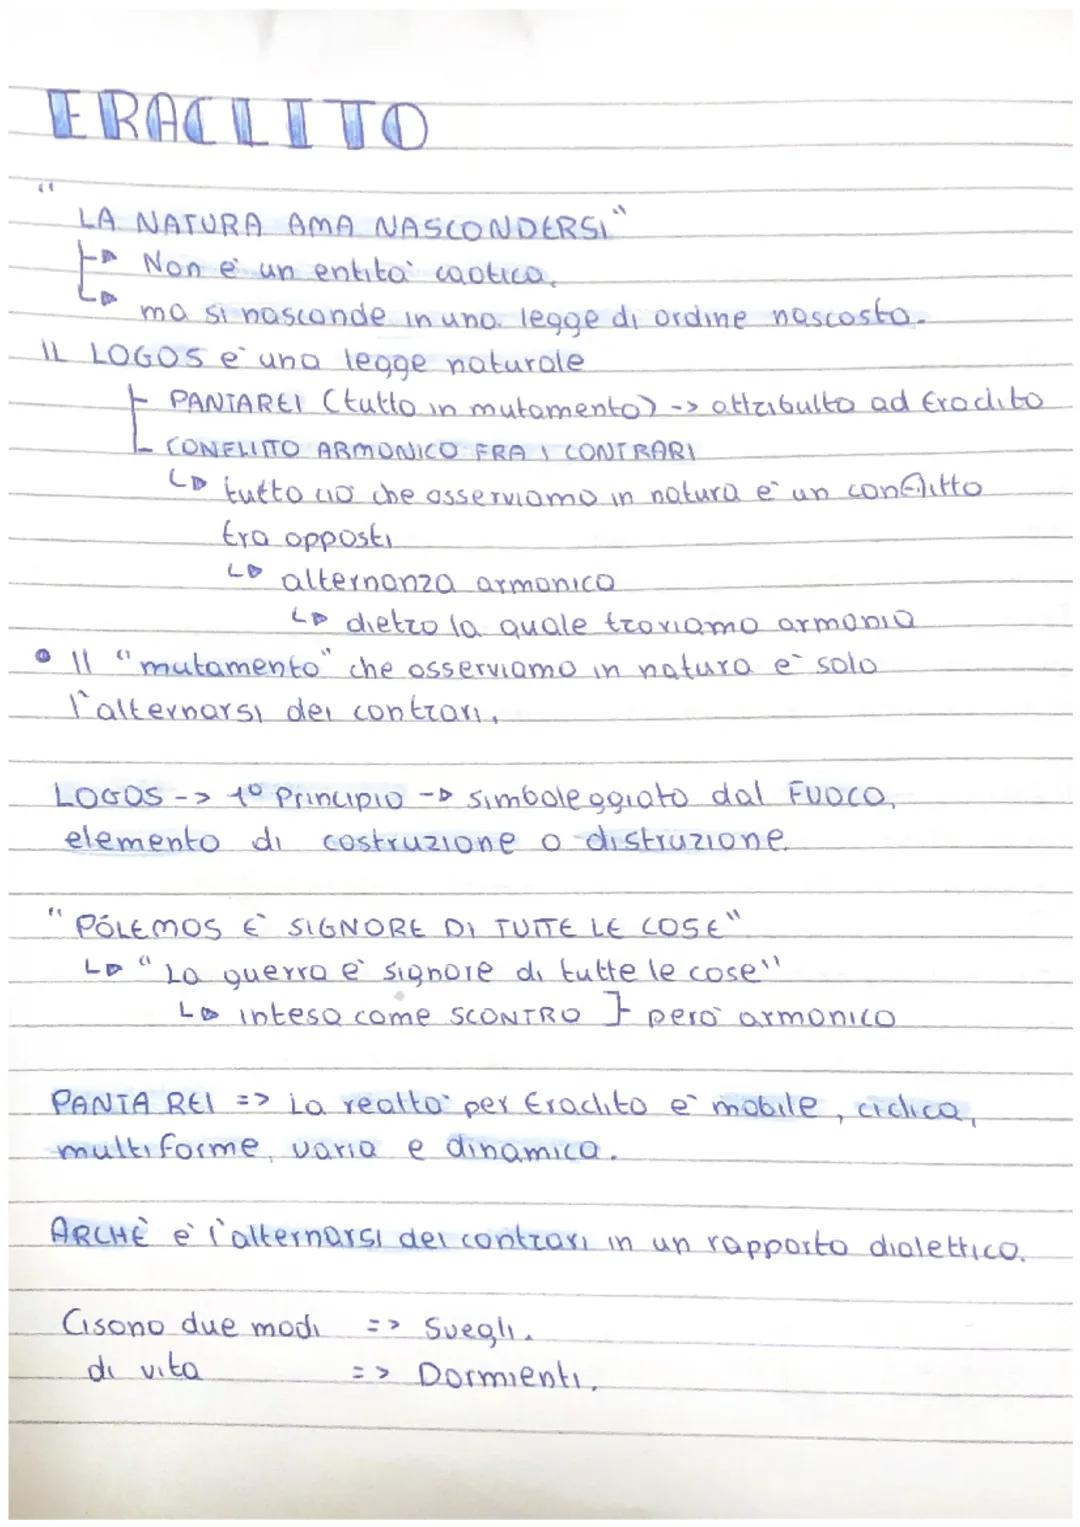 ERACLITO
"LA NATURA AMA NASCONDERSI"
Non è un entità caotica,
ma si nasconde in una legge di ordine nascosta.
IL LOGOS è una legge naturale
PANTAREI (tutto in mutamento) -> attribuito ad Eraclito
CONFLITTO ARMONICO FRA I CONTRARI
tutto ciò che osserviamo in natura è un conflitto
tra opposti
alternanza armonica
dietro la quale troviamo armonia
• Il "mutamento" che osserviamo in natura è solo
l'alternarsi dei contrari.
LOGOS -> 1° Principio -> simboleggiato dal FUOCO,
elemento di costruzione o distruzione.
"PÓLEMOS È SIGNORE DI TUTTE LE COSE"
"La guerra è signore di tutte le cose"
intesa come SCONTRO } però armonico
PANTA REI => La realtà per Eraclito è mobile, ciclica,
multiforme, varia e dinamica.
ARCHÈ è l'alternarsi dei contrari in un rapporto dialettico.
Ci sono due modi => Svegli.
di vita => Dormienti.